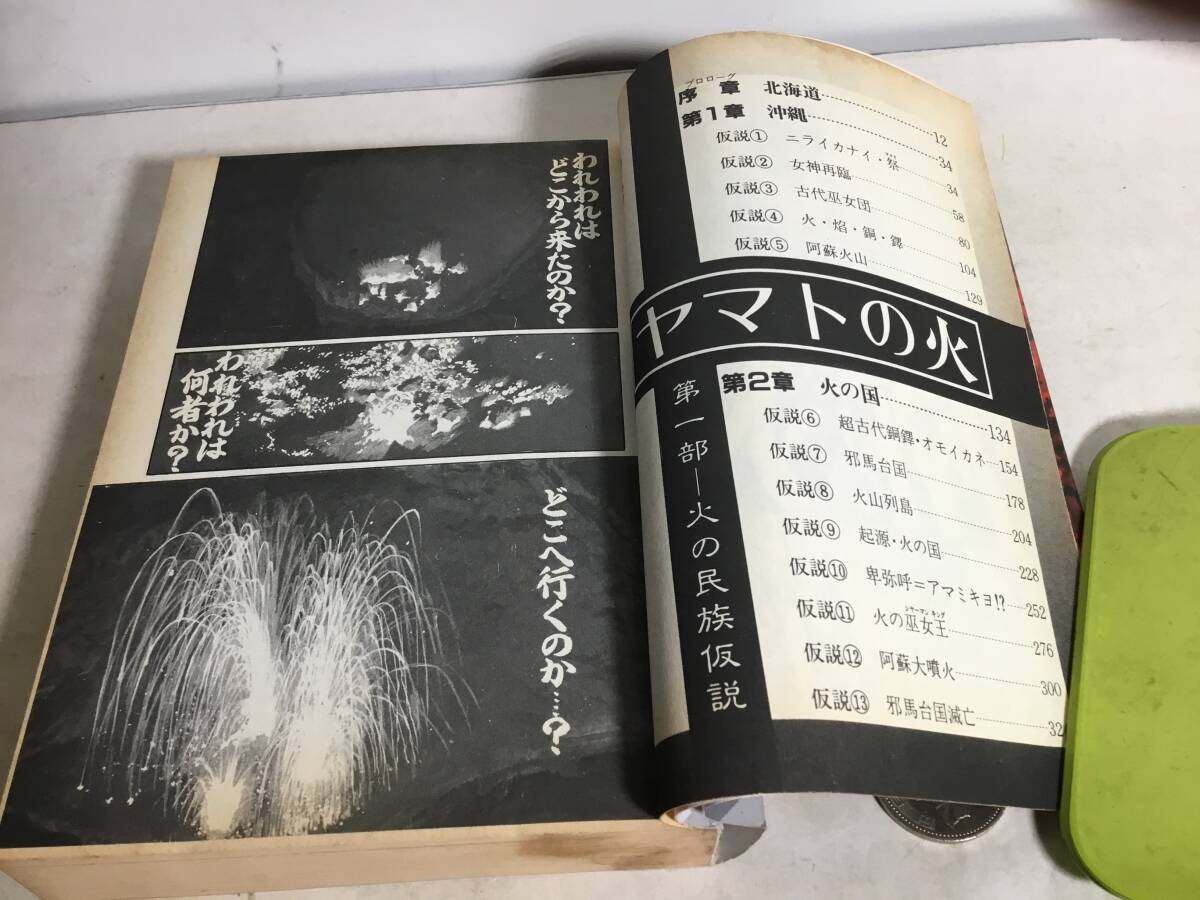 われわれは
どこから来たのか?
われわれは
何者か?
どこへ行くのか…?
プロローグ
序章 北海道……12
第1章 沖縄……34
仮説① ニライカナイ・祭……34
仮説② 女神再臨……58
仮説③ 古代巫女団……80
仮説④ 火・焰・銅・鐸……104
仮説⑤ 阿蘇火山……129
ヤマトの火
第一部―火の民族仮説
第2章 火の国……134
仮説⑥ 超古代銅鐸・オモイカネ……154
仮説⑦ 邪馬台国……178
仮説⑧ 火山列島……204
仮説⑨ 起源・火の国……228
仮説⑩ 卑弥呼=アマミキヨ!?……252
シャーマンキング
仮説⑪ 火の巫女王……276
仮説⑫ 阿蘇大噴火……300
仮説⑬ 邪馬台国滅亡……32